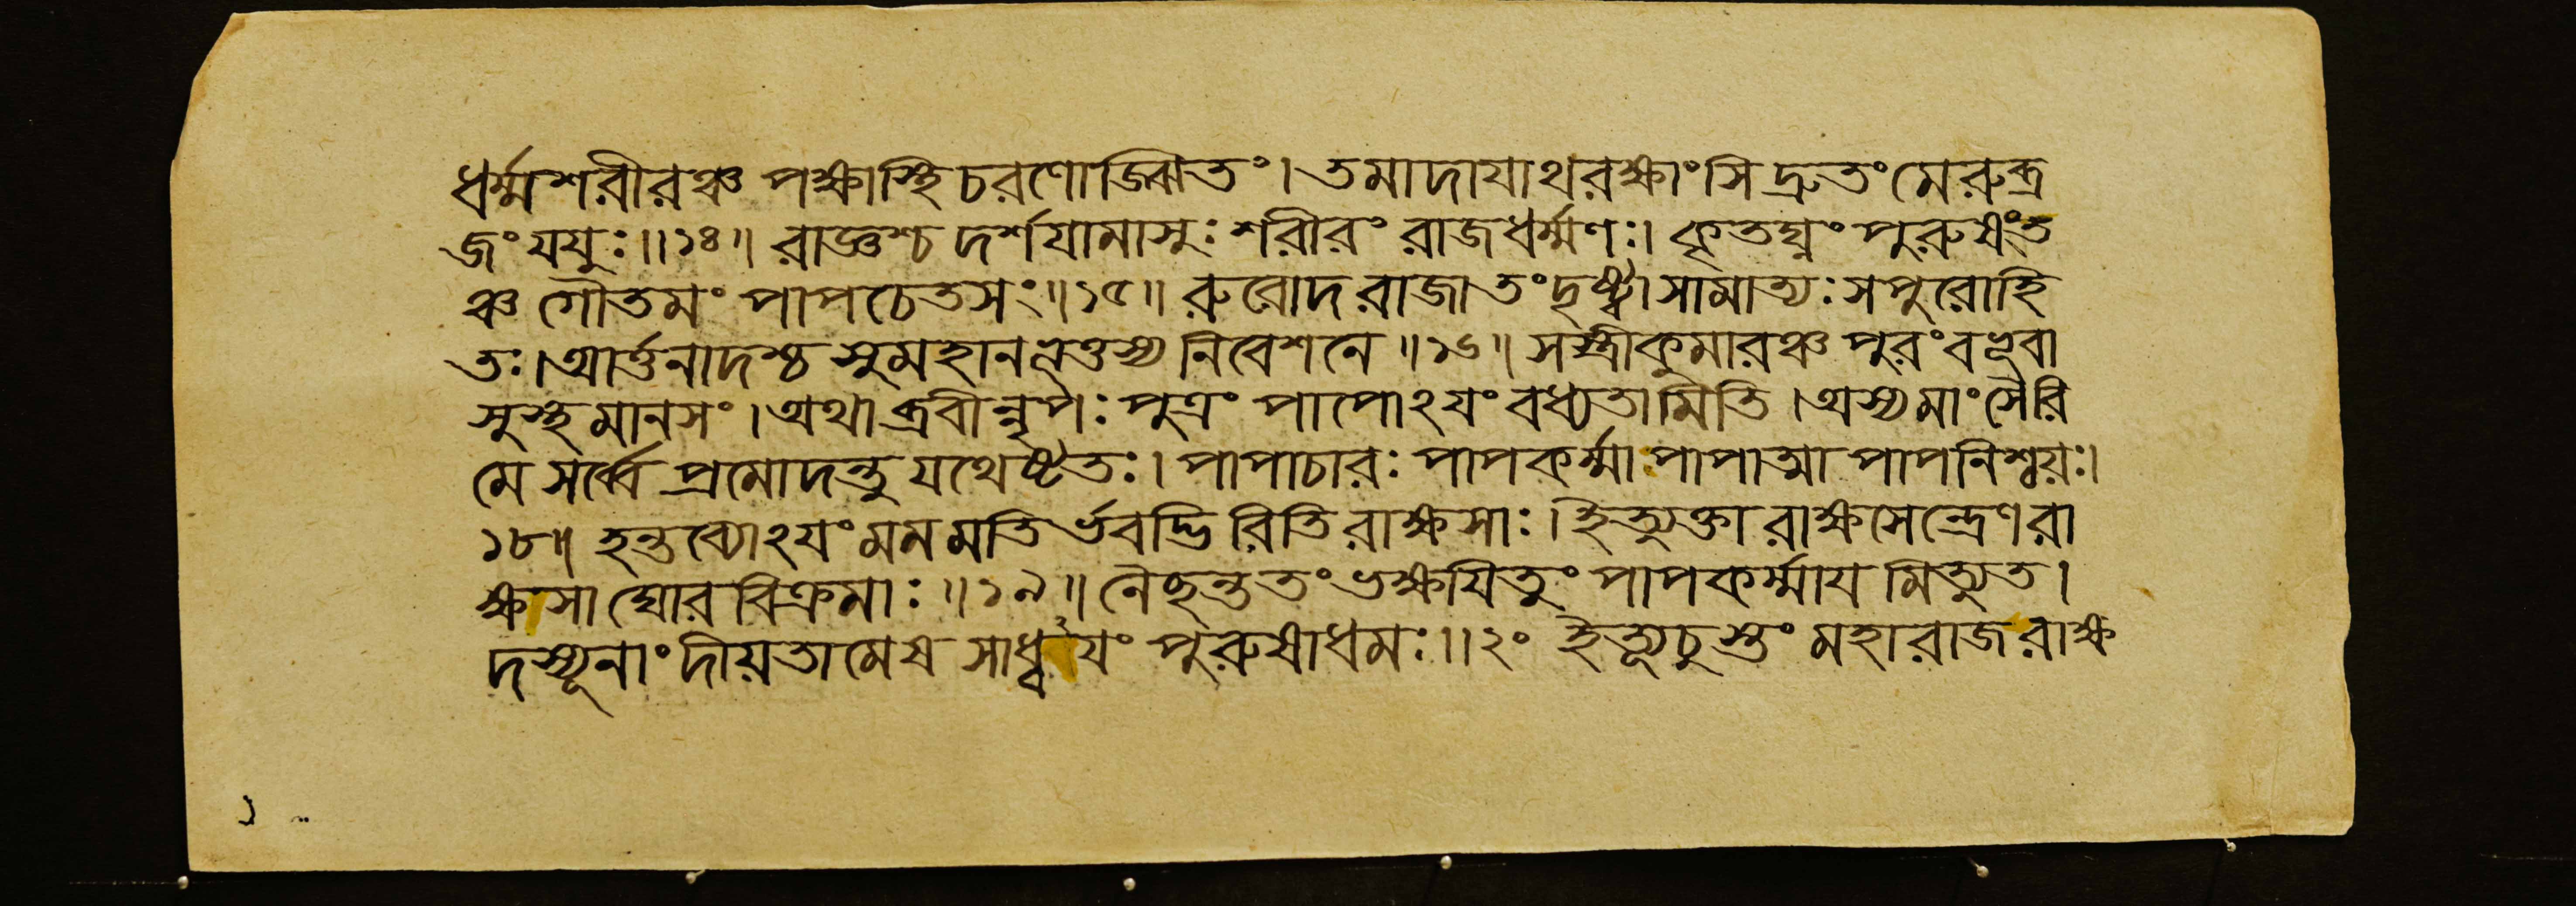 ধর্ম্মশরীরঞ্চ পক্ষাস্থিচরণোজ্ঝিতং। তমাদাযাথরক্ষাংসি দ্রুতং মেরুব্র
জং যযুঃ॥১৪॥ রাজ্ঞশ্চ দর্শযামাসুঃ শরীরং রাজধর্ম্মণঃ। কৃতঘ্নং পুরুষংত
ঞ্চ গৌতমং পাপচেতসং॥১৫॥ রুরোদ রাজা তং দৃষ্ট্বা সামাত্যঃ সপুরোহি
তঃ। আর্ত্তনাদশ্চ সুমহানভূত্তস্য নিবেশনে॥১৬॥ সস্ত্রীকুমারঞ্চ পুরং বভূবা
সুস্থমানসং। অথাব্রবীন্নৃপঃ পুত্রং পাপোঽযং বধ্যতামিতি। অস্যমাংসৈরি
মে সর্ব্বে প্রমোদন্তু যথেষ্টতঃ। পাপাচারঃ পাপকর্ম্মা পাপাত্মা পাপনিশ্চয়ঃ।
১৮॥ হন্তব্যোঽযং মম মতির্ভবদ্ভিরিতি রাক্ষসাঃ। ইত্যুক্তা রাক্ষসেন্দ্রেণ রা
ক্ষসা ঘোরবিক্রমাঃ॥১৯॥ নৈছন্ততং ভক্ষযিতুং পাপকর্ম্মায মিত্যুত।
দস্যূনাং দীয়তামেষ সাধ্বাযং পুরুষাধমঃ॥২০ ইত্যূচুস্তং মহারাজ রাক্ষ